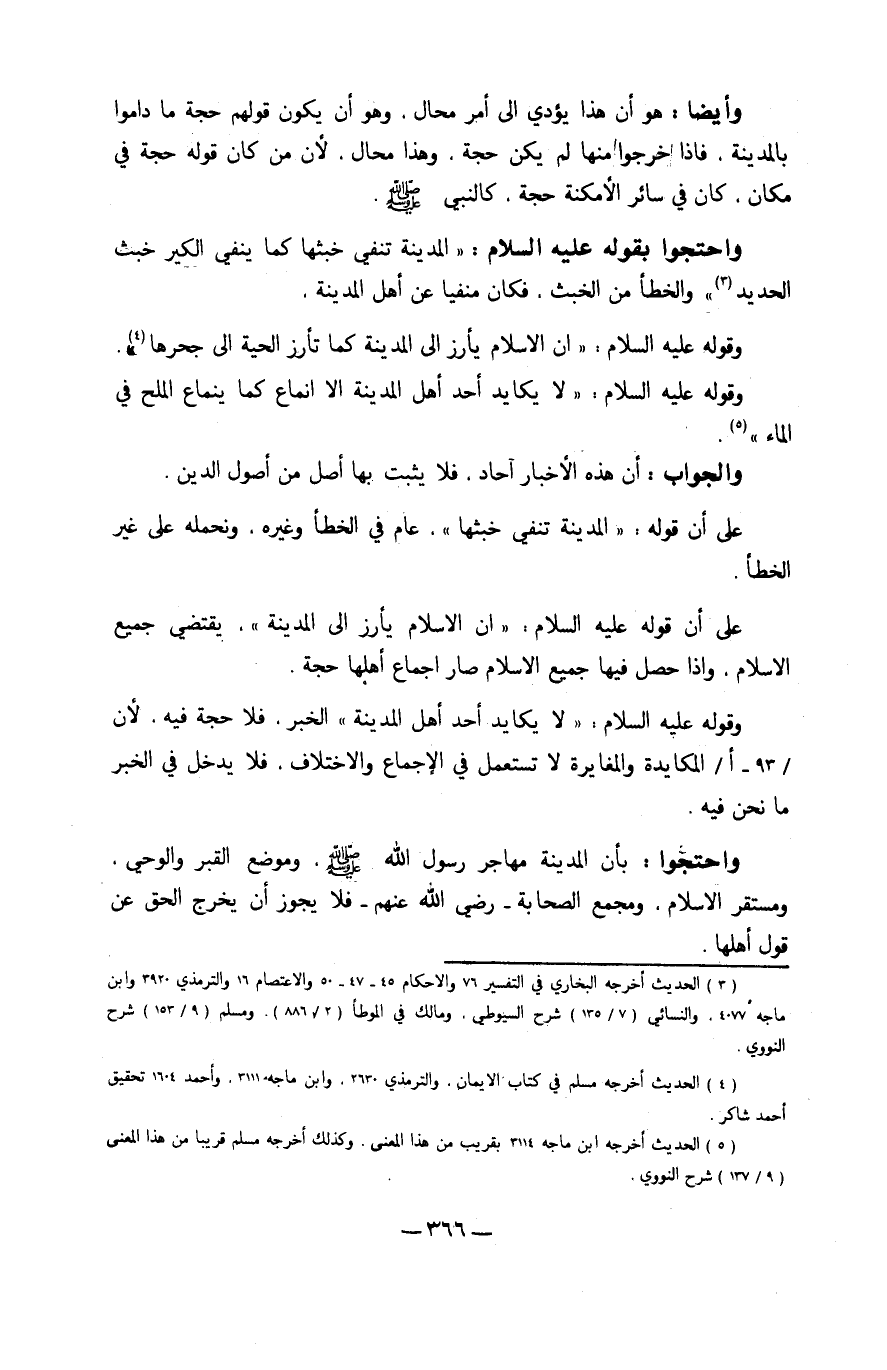 وأيضا : هو أن هذا يؤدي الى أمر محال ، وهو أن يكون قولهم حجة ما داموا
بالمدينة ، فاذا خرجوا منها لم يكن حجة ، وهذا محال ، لأن من كان قوله حجة في
مكان ، كان في سائر الأمكنة حجة ، كالنبي ﷺ .
واحتجوا بقوله عليه السلام : « المدينة تنفي خبثها كما ينفي الكير خبث
الحديد (٣)» والخطأ من الخبث ، فكان منفيا عن أهل المدينة .
وقوله عليه السلام : « ان الاسلام يأرز الى المدينة كما تأرز الحية الى جحرها(٤)» .
وقوله عليه السلام : « لا يكايد أحد أهل المدينة الا انماع كما ينماع الملح في
الماء » (٥) .
والجواب : أن هذه الأخبار آحاد ، فلا يثبت بها أصل من أصول الدين .
على أن قوله : « المدينة تنفي خبثها » ، عام في الخطأ وغيره ، ونحمله على غير
الخطأ .
على أن قوله عليه السلام : « ان الاسلام يأرز الى المدينة » ، يقتضي جميع
الاسلام ، واذا حصل فيها جميع الاسلام صار اجماع أهلها حجة .
وقوله عليه السلام : « لا يكايد أحد أهل المدينة » الخبر ، فلا حجة فيه ، لأن
/ ٩٣ ـ أ/ المكايدة والمغايرة لا تستعمل في الإجماع والاختلاف ، فلا يدخل في الخبر
ما نحن فيه .
واحتجوا : بأن المدينة مهاجر رسول الله ﷺ ، وموضع القبر والوحي ،
ومستقر الاسلام ، ومجمع الصحابة ـ رضي الله عنهم ـ فلا يجوز أن يخرج الحق عن
قول أهلها .
( ٣ ) الحديث أخرجه البخاري في التفسير ٧٦ والاحكام ٤٥ ـ ٤٧ ـ ٥٠ والاعتصام ١٦ والترمذي ٣٩٢٠ وابن
ماجه ٤٠٧٧ ، والنسائي ( ٧ / ١٣٥ ) شرح السيوطي ، ومالك في الموطأ ( ٢ / ٨٨٦ ) . ومسلم ( ٩ / ١٥٣ ) شرح
النووي .
( ٤ ) الحديث أخرجه مسلم في كتاب الايمان ، والترمذي ٢٦٣٠ ، وابن ماجه ٣١١١ ، وأحمد ١٦٠٤ تحقيق
أحمد شاكر .
( ٥ ) الحديث أخرجه ابن ماجه ٣١١٤ بقريب من هذا المعنى ، وكذلك أخرجه مسلم قريبا من هذا المعنى
( ٩ / ١٣٧ ) شرح النووي .
— ٣٦٦ —